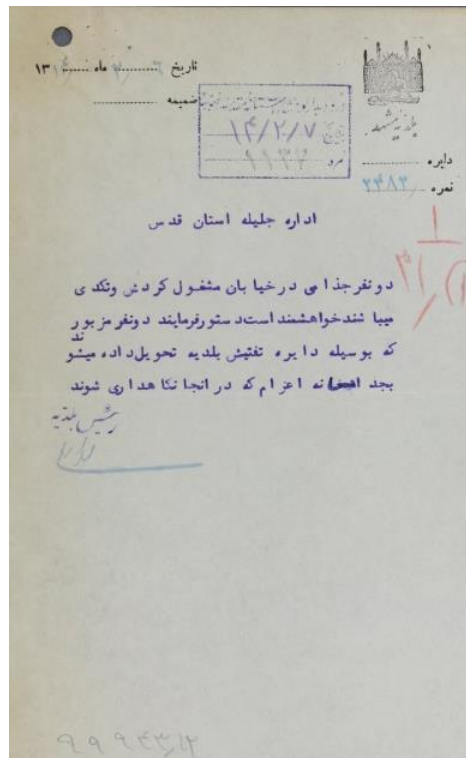 بلدیه مشهد
تاریخ ۶ ماه ۲ ۱۳۱۴
ضمیمه
دایره
نمره ۲۳۸۳
تاریخ ۱۴/۲/۷
نمره
اداره جلیله استان قدس
دونفرجذامی درخیابان مشغول کردش وتکدی
میباشندخواهشمنداست دستورفرمایند دونفرمزبور
که بوسیله دایره تفتیش بلدیه تحویل داده میشوند
بجذامیخانه اعزام که درانجا نکاهداری شوند
رئیس بلدیه
۹۹۹۴۳/۱۲